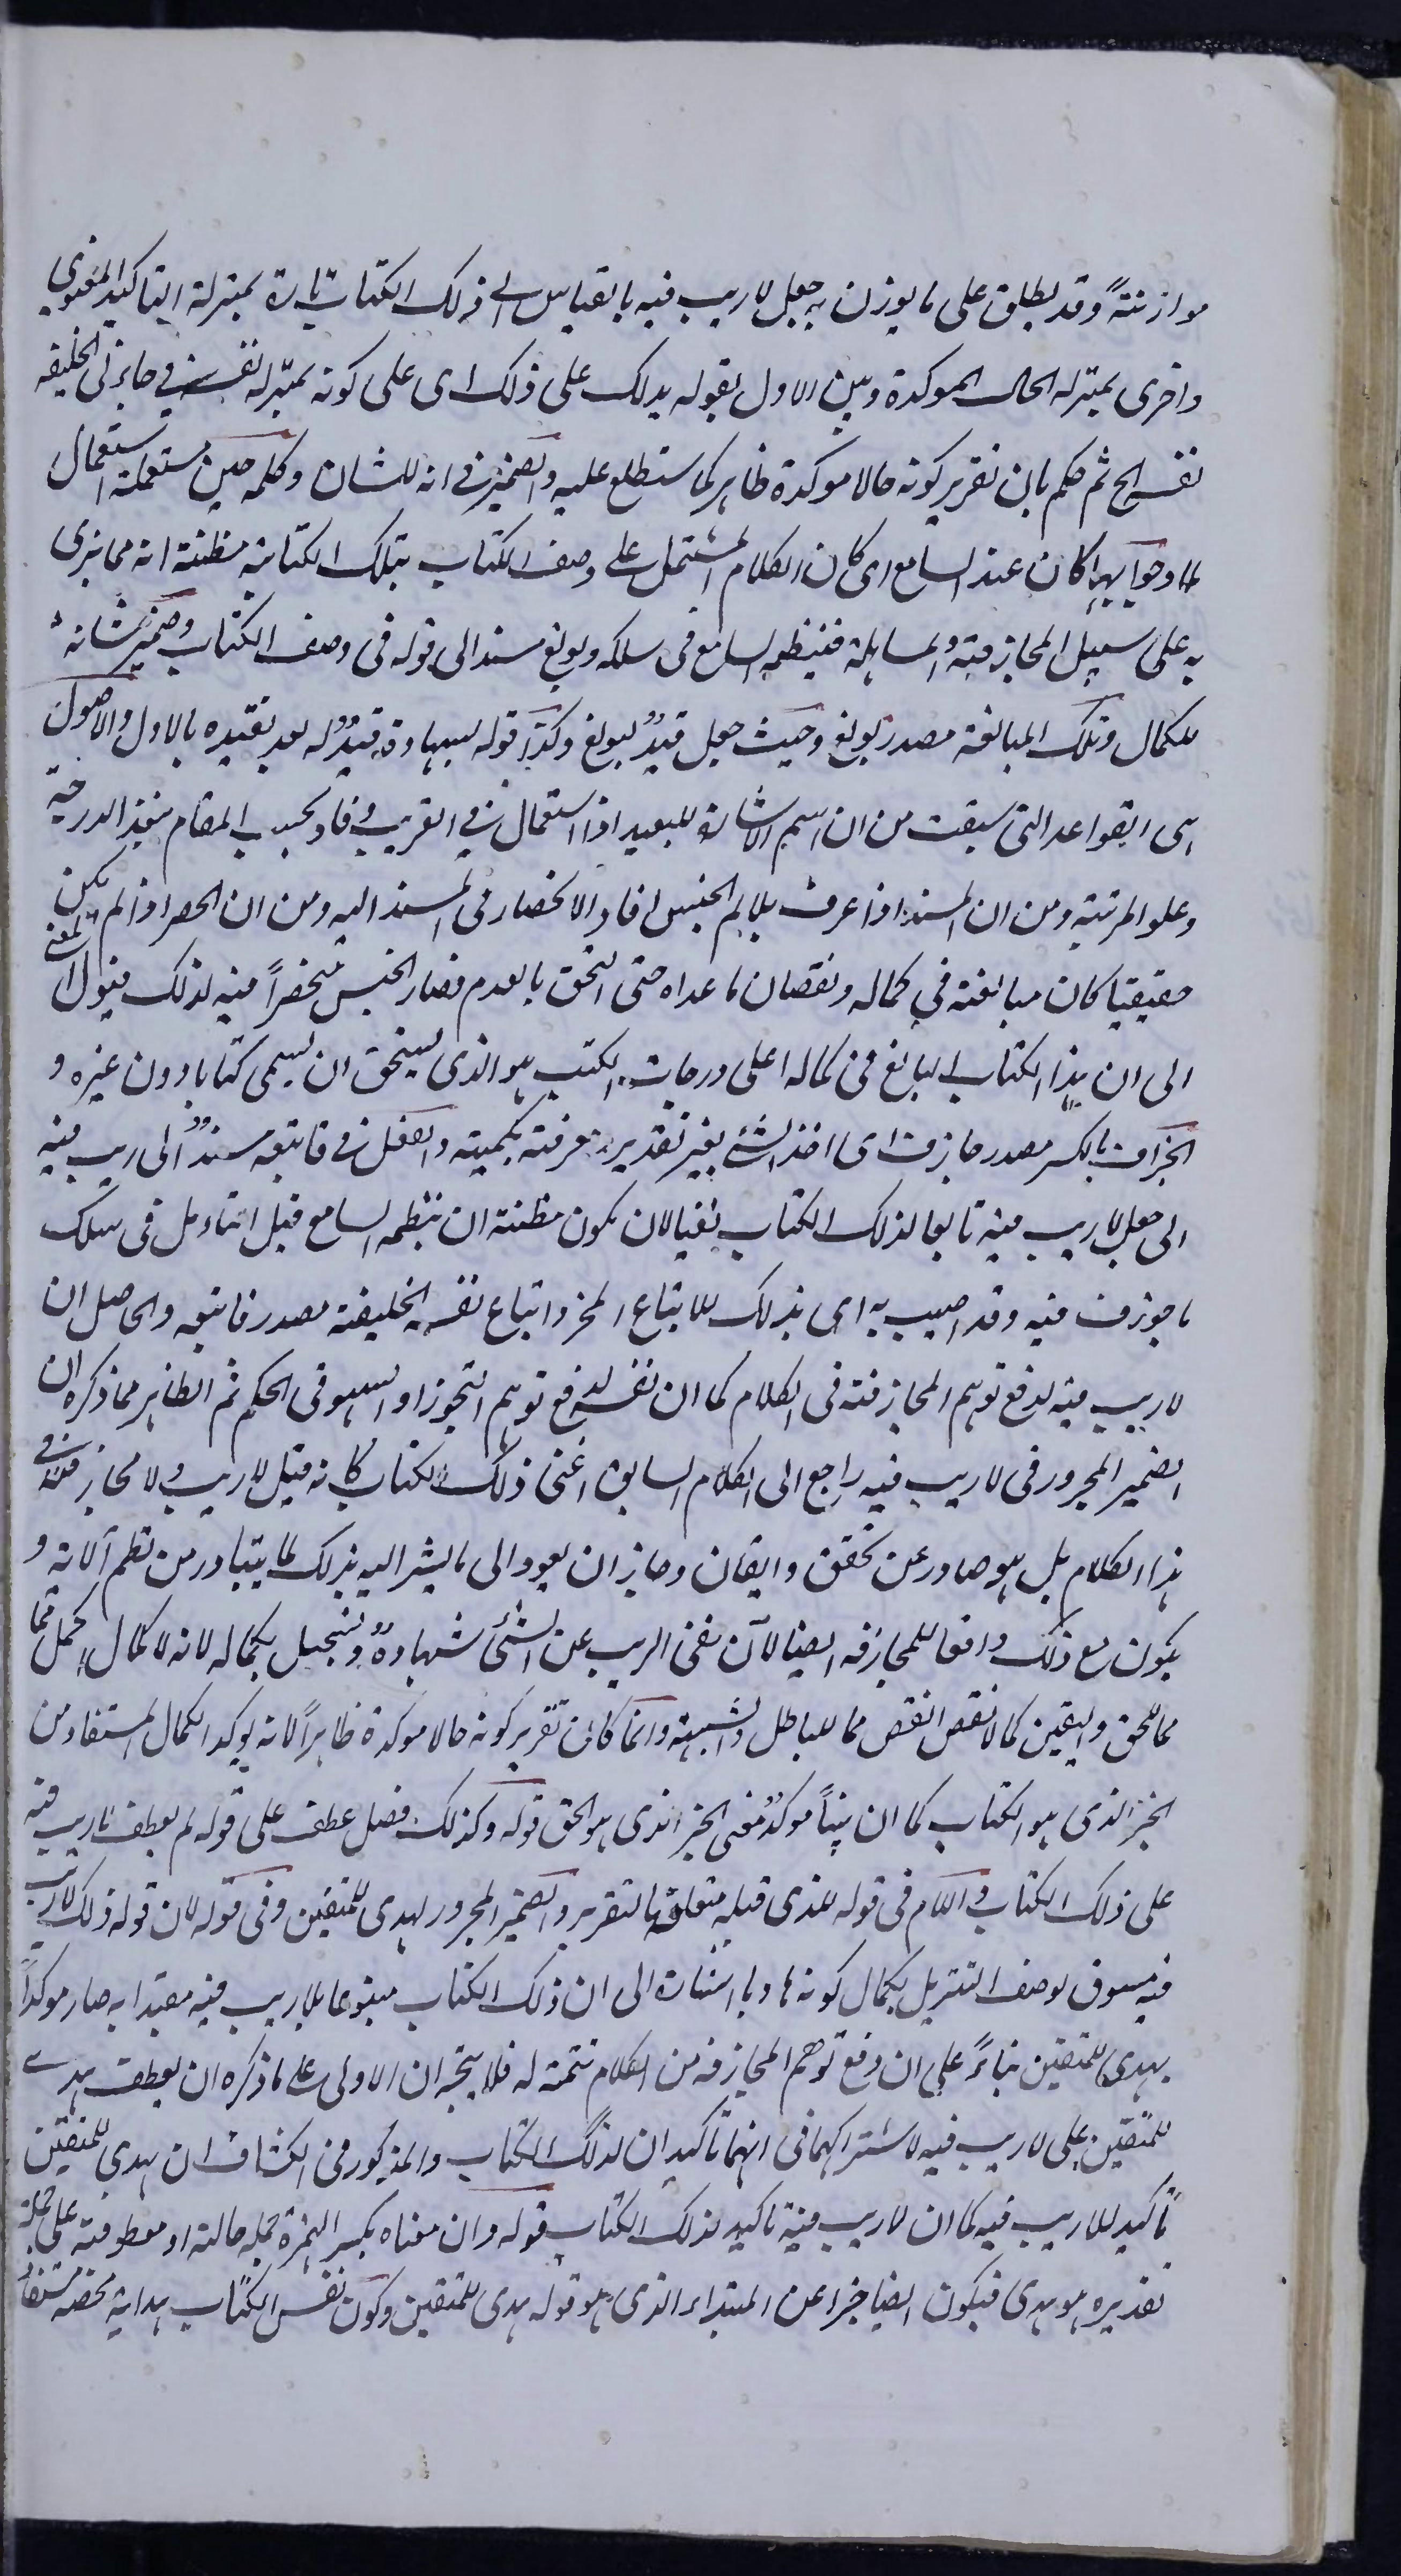 موازنتةً وقد يطلق على ما يوزن به جعل لا ريب فيه بالقياس الى ذلك الكتاب تارة بمنزلة التاكيد المعنوي
واخرى بمنزلة الحال الموكدة وبين الاول بقوله يدلك على ذلك اى على كونه بمنزلة نفسه في جاءنى الخليفه
نفسه الخ ثم حكم بان تقرير كونه حالا موكدة ظاهر كما ستطلع عليه والضمير فى انه للشان وكلمه حين مستعملة استعمال
لما وجوابها كان عند السامع اى كان الكلام المشتمل على وصف الكتاب بتلك الكتابة مظنة انه مما يرمى
به على سبيل المجازفة والمساهلة فينظمه السامع فى سلكه وبولغ مسند الى قوله فى وصف الكتاب وضمير شانه
للكمال وتلك المبالغة مصدر بولغ وحيث جعل قيد لبولغ وكذا قوله قيد له بعد تقييده بالاول والاصول
هى القواعد التى سبقت من ان اسم الاشارة للبعيد اذا استعمال في القريب افاد بحسب المقام بعد الدرجة
وعلو المرتبة ومن ان المسند اذا عرف بلام الجنس افاد الانحصار فى المسند اليه ومن ان الحصر اذا لم يكن
حقيقيا كان مبالغة في كماله ونقصان ما عداه حتى التحق بالعدم فصار الجنس منحصراً فيه لذلك فيول المعنى
الى ان هذا الكتاب البالغ فى كماله اعلى درجات الكتب هو الذى يستحق ان يسمى كتابا دون غيره و
الجزاف بالكسر مصدر جازف اى اخذ الشئ بغير تقدير ومعرفة بكمية والفعل فى فاتبعه مسند الى ريب فيه
اى جعل لا ريب فيه تابعا لذلك الكتاب نفيا لان يكون مظنة ان ينظمه السامع قبل التامل فى سلك
ما جوزف فيه وقد اصيب به اى بذلك للاتباع المحز واتباع نفسه الخليفة مصدر فاتبعه والحاصل ان
لا ريب فيه لدفع توهم المجازفة فى الكلام كما ان نفسه لدفع توهم التجوز او السهو فى الحكم ثم الظاهر مما ذكره ان
الضمير المجرور فى لا ريب فيه راجع الى الكلام السابق اعنى ذلك الكتاب كانه قيل لا ريب ولا مجازفة في
هذا الكلام بل هو صادر عن تحقق وايقان وجاز ان يعود الى ما يشر اليه بذلك كما يتبادر من نظم آلاته و
يكون مع ذلك دافعا للمجازفه ايضا لان نفى الريب عن الشئ شهادة وتسجيل بكماله لانه لا كمال اكمل مما
مما للحق واليقين كما لا نقص انقص مما للباطل والشبهة وانما كان تقرير كونه حالا موكدة ظاهراً لانه يوكد الكمال المستفاد من
الخبر الذى هو الكتاب كما ان بيناً موكد معنى الخبر الذى هو الحق قوله وكذلك فصل عطف على قوله لم يعطف لا ريب فيه
على ذلك الكتاب واللام فى قوله للذى قبله متعلقة بالتقرير والضمير المجرور لهدى للمتقين وفى قوله لان قوله ذلك لا ريب
فيه مسوق لوصف التنزيل بكمال كونه هاديا اشارة الى ان ذلك الكتاب متبوعا بلا ريب فيه مقيدا به صار موكداً
بهدى للمتقين بناءً على ان دفع توهم المجازفه من الكلام تتمة له فلا يتجه ان الاولى على ما ذكره ان يعطف هدى
للمتقين على لا ريب فيه لاشتراكهما فى انهما تاكيدان لذلك الكتاب والمذكور فى الكشاف ان هدى للمتقين
تاكيد للا ريب فيه كما ان لا ريب فيه تاكيد لذلك الكتاب قوله وان معناه بكسر الهمزة جمله حالته او معطوفة على جملة
تقديره هو هدى فيكون ايضا خبرا عن المبتداء الذى هو قوله هدى للمتقين وكون نفس الكتاب هداية محضه مستفاد